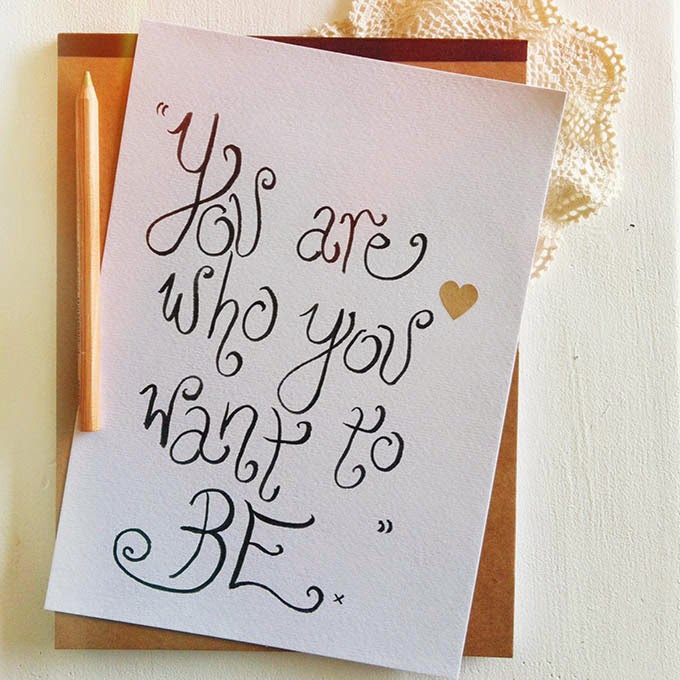 "You are
who you
want to
BE. x"